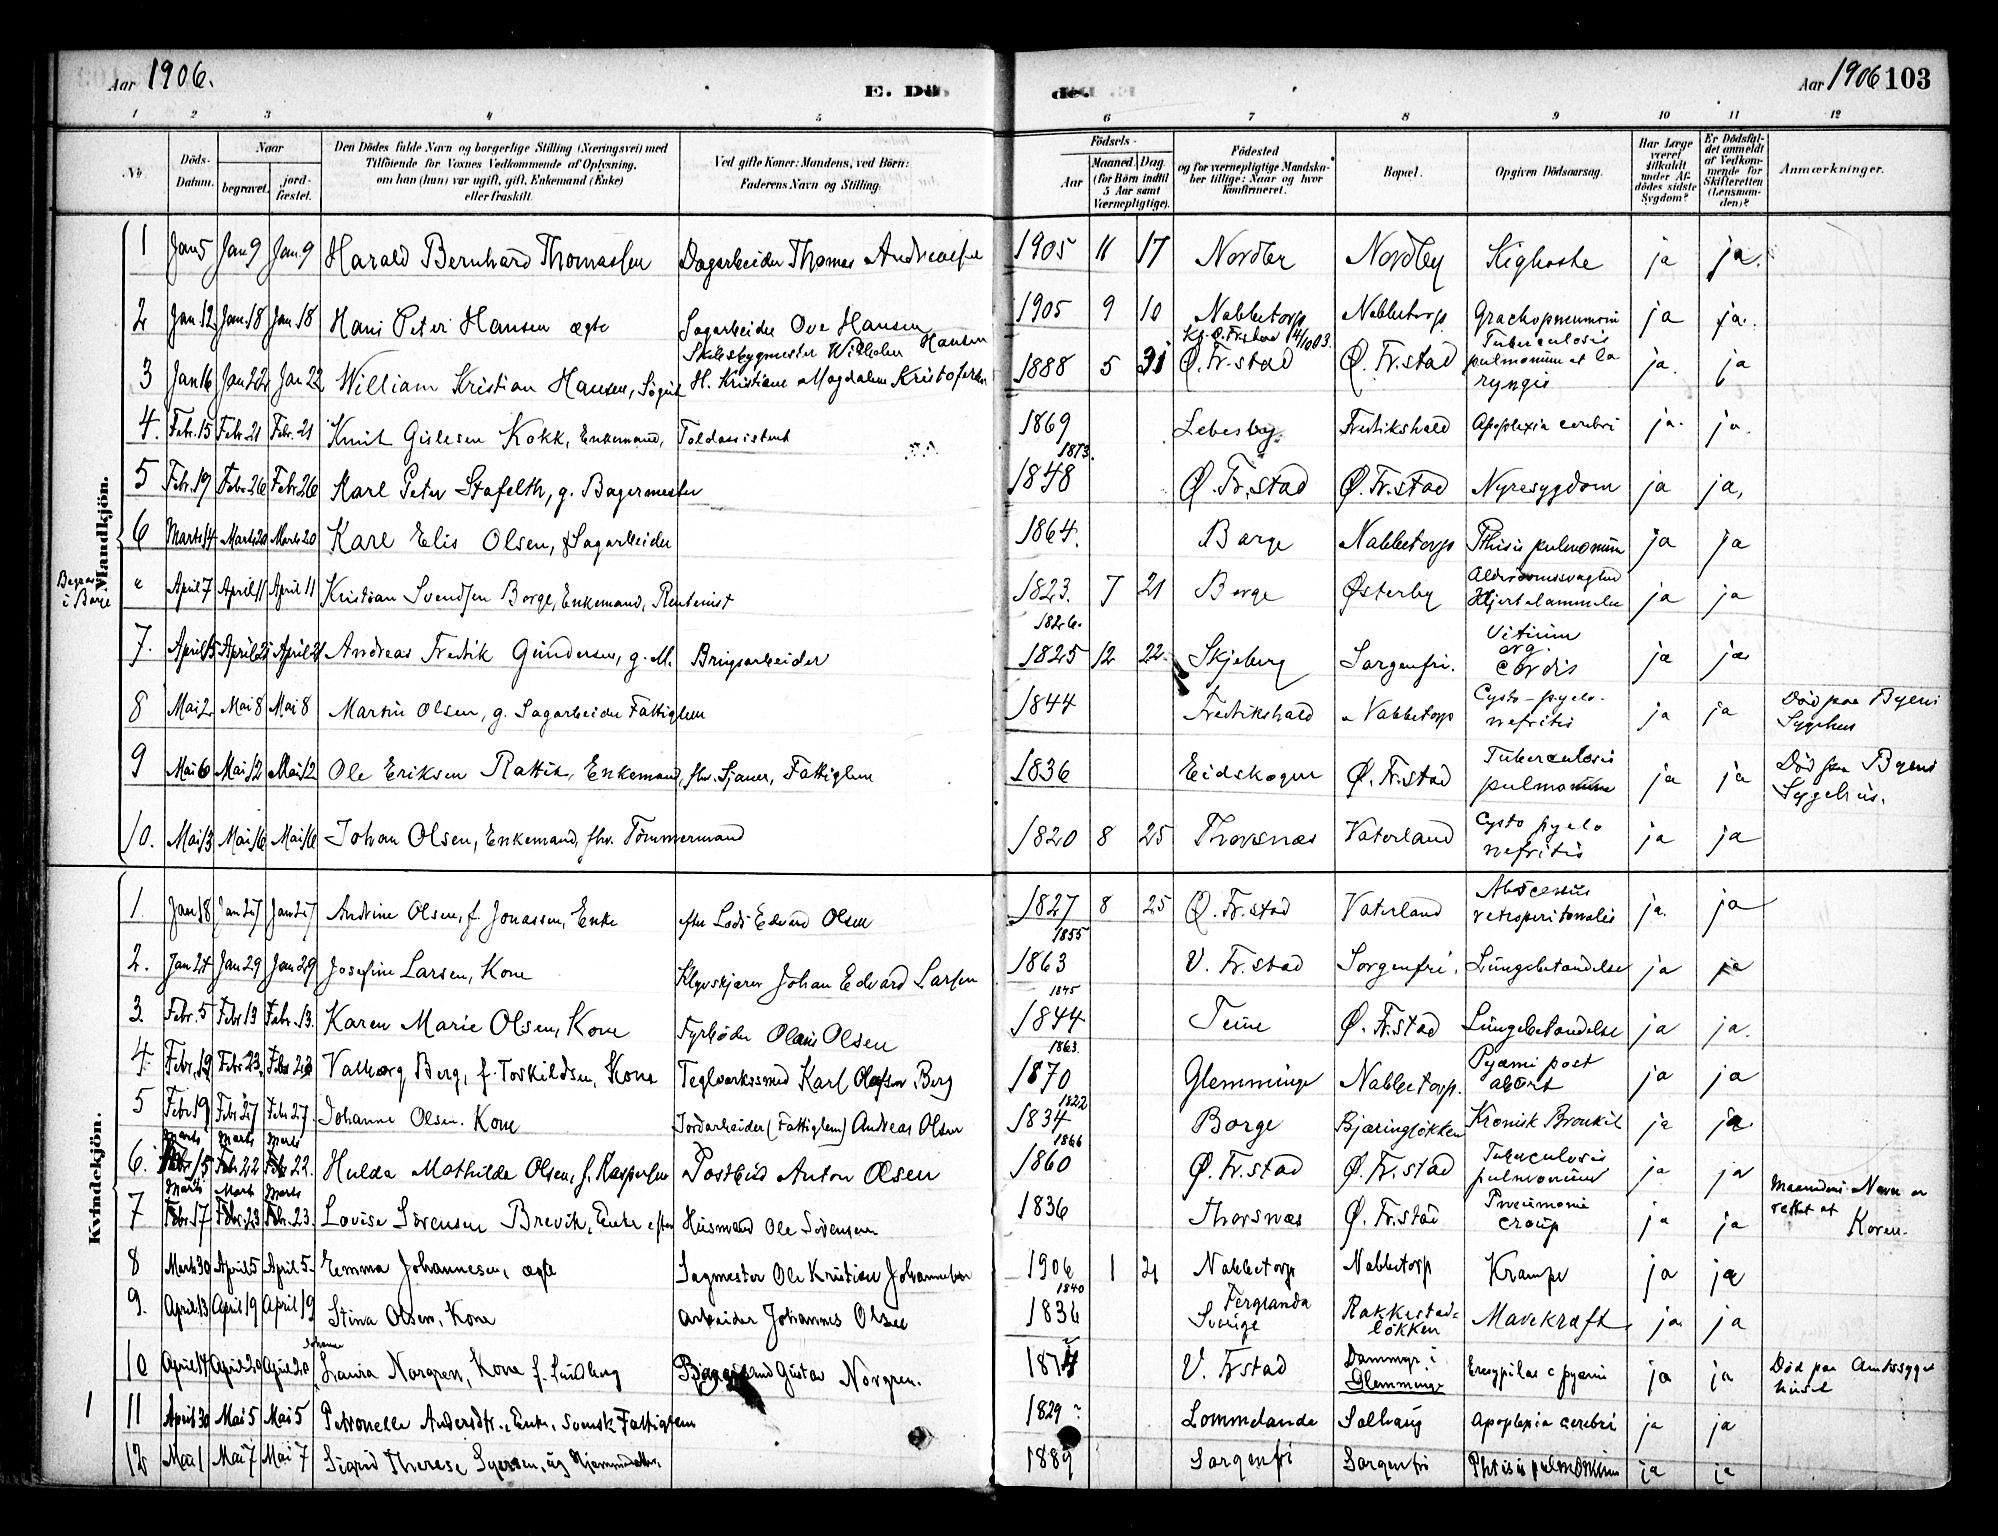 Aar 1906.
E. Dö
de.
Aar 1906 103
1 2 3 4 5 6 7 8 9 10 11 12
Nr.
Döds-Datum.
Naar
begravet.
jord-fæstet.
Den Dödes fulde Navn og borgerlige Stilling (Næringsvei) med
Tilföiende for Voxnes Vedkommende af Oplysning,
om han (hun) var ugift, gift, Enkemand (Enke)
eller fraskilt.
Ved gifte Koner: Mandens, ved Börn:
Faderens Navn og Stilling.
Födsels-
Aar
Maaned. Dag.
(for Börn indtil
5 Aar samt
Værnepligtige).
Födested
og for værnepligtige Mandska-
ber tillige: Naar og hvor
konfirmeret.
Bopæl.
Opgiven Dödsaarsag.
Har Læge
været
tilkaldt
under Af-
dödes sidste
Sygdom?
Er Dödsfal-
det anmeldt
af Vedkom-
mende for
Skifteretten
(Lensman-
den)?
Anmærkninger.
Mandkjön.
1 Jan 5 Jan 9 Jan. 9 Harald Bernhard Thomassen Dagarbeider Thomas Andreassen 1905 11 17 Nordby Nordby Kighoste ja ja.
2 Jan 12 Jan. 18 Jan. 18 Hans Peter Hansen ægte Sagarbeider Ove Hansen 1905 9 10 Nabbetorp Nabbetorp ja ja.
Skibsbygmester Wilhelm Hansen Kf. Ø. Fr.stad 4/10 03. Tuberculosis
3 Jan 16 Jan 22 Jan 22 William Kristian Hansen, H. Kristiane Magdalene Kristofersen 1888 5 31 Ø. Fr.stad Ø. Fr.stad pulmonum et la
ryngis ja. ja
4. Febr. 15 Febr. 21 Febr. 21 Knut Gislesen Kokk, Enkemand, Toldassistent 1869 Lebesby Fredrikshald Apoplexia cerebri ja. ja.
1813.
5 Febr. 19 Febr. 26 Febr. 26 Karl Peter Stafelth, g. Bagermester 1848 Ø. Fr.stad Ø. Fr.stad Nyresygdom ja ja,
6 Marts 14 Marts 20 Marts 20 Karl Elis Olsen, Sagarbeider 1864. Borge Nabbetorp Pthisis pulmonum ja ja
Begrav.
i Borge
" April 7 April 11 April 11 Kristian Svendsen Borge, Enkemand, Rentenist 1823. 7 21 Borge Østerby Alderdomssvaghed
Hjertelammelse ja ja
1826.
7. April 15 April 21 April 21 Andreas Fredrik Gundersen, g. M. Brugsarbeider 1825 12 22. Skjeberg Sorgenfri. Vitium
org.
cordis ja ja
8 Mai 2 Mai 8 Mai 8 Martin Olsen, g. Sagarbeider Fattiglem 1844 Fredrikshald Nabbetorp Cysto-pyelo-
nefritis ja ja Död paa Byens
Sygehus
9 Mai 6 Mai 12 Mai 12 Ole Eriksen Enkemand, fhv. Sjauer, Fattiglem 1836 Eidskogen Ø. Fr.stad Tuberculosis
pulmonum ja ja Död paa Byens
Sygehus.
10. Mai 13 Mai 16 Mai 16 Johan Olsen, Enkemand, fhv. Tömmermand 1820 8 25 Thorsnæs Vaterland Cysto pyelo
nefritis ja ja
Kvindekjön.
1. Jan 18 Jan 27 Jan 27 Andrine Olsen, f. Jonassen, Enke efter Lods Edvard Olsen 1827 8 25 Ø. Fr.stad Vaterland Abscessus
retroperitonalis ja. ja
1855
2. Jan 24 Jan 29 Jan 29 Josefine Larsen, Kone Johan Edvard Larsen 1863 V. Fr.stad Sorgenfri. Lungebetændelse ja ja
1845
3. Febr. 5 Febr 13 Febr. 13. Karen Marie Olsen, Kone Fyrböder Olaus Olsen 1844 Teune Ø. Fr.stad Lungebetændelse ja ja.
1863.
4. Febr. 19 Febr 23. Febr 23 Valborg Berg, f. Torkildsen, Kone Teglverkssmed Karl Olafsen Berg 1870 Glemminge Nabbetorp. Pyæmi post
abort ja ja
1822
5 Febr 19 Febr 27 Febr 27 Johanne Olsen. Kone Jordarbeider (Fattiglem) Andreas Olsen 1834 Borge Bjæringlökken Kronisk Bronkit ja ja
Marts Marts Marts 1866
6. Febr. 15 Febr 22 Febr 22. Hulda Mathilde Olsen, f. Kaspersen Postbud Anton Olsen 1860 Ø. Fr.stad Ø. Fr.stad Tuberculosis
pulmonum ja ja
Marts Marts Marts
7 Febr. 17 Febr. 23 Febr. 23. Lovise Sörensen Brevik, Enke efter Husmand Ole Sörensen 1836 Thorsnæs Ø. Fr.stad Pneumonia
croup ja ja Maanedens Navn er
rettet af
Koren.
8 Mart 30 April 5 April 5. Emma Johannesen, ægte Sagmester Ole Kristian Johannesen 1906 1 21 Nabbetorp Nabbetorp Krampe ja ja
1840
9. April 13 April 19 April 19 Stina Olsen, Kone Arbeider Johannes Olsen 1836 Ferglanda
Sverige Rakkestad-
lökken Mavekræft ja ja
Johanne
10 April 14 April 20 April 20 Laura Norgren, Kone f. Lundberg Gustav Norgren. 1874 V. Fr.stad Dammyr i
Glemminge Erysipelas c pyæmi ja ja Död paa Amtssyge
huset
1
11 April 30 Mai 5 Mai 5 Petronelle Andersdtr., Enke, Svensk Fattiglem 1829 ? Lommelanda Solhaug Apoplexia cerebri ja ja
12 Mai 1 Mai 7 Mai 7 Sigrid Therese Syversen, ug Hjemmedatter. 1889 Sorgenfri Sorgenfri Phtisis pulmonum ja ja